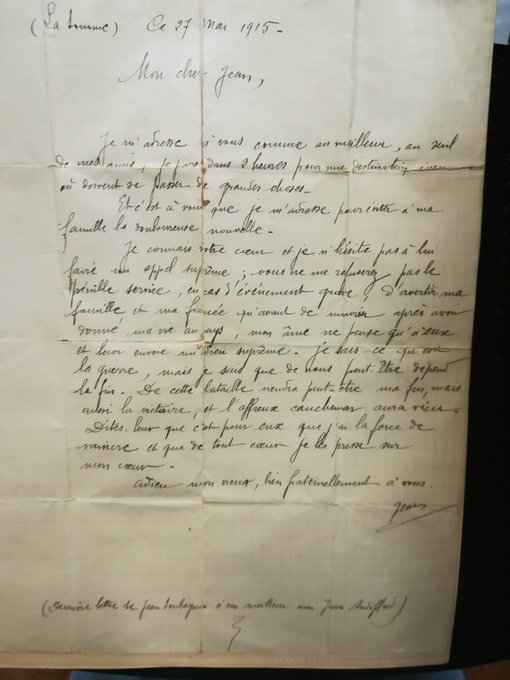 (La Somme) Ce 27 Mai 1915 -
Mon cher Jean,
Je m'adresse à vous comme au meilleur, au seul
de mes amis, je pars dans 2 heures pour une destination
où doivent se passer de grandes choses -
Et c'est à vous que je m'adresse pour à ma
famille la douloureuse nouvelle -
Je connais votre cœur et je n'hésite pas à lui
faire un appel suprême ; vous ne me refuserez pas le
pénible service, en cas d'événement grave, d'avertir ma
famille et ma fiancée qu'avant de mourir après avoir
donné ma vie au pays, mon âme ne pense qu'à eux
et leur envoie un adieu suprême. Je sais ce qu'est
la guerre, mais je sais que de nous peut être dépend
la fin. De cette bataille viendra peut-être ma fin, mais
aussi la victoire, et l'affreux cauchemar aura vécu.
Dites-leur que c'est pour eux que j'ai la force de
vaincre et que de tout cœur je les presse sur
mon cœur -
Adieu mon vieux, bien fraternellement à vous.
Jean
(Dernière lettre de Jean à son meilleur ami Jean Audiffred)